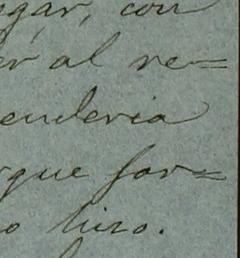 egar, con
er al re=
enderia
rque for=
o hizo.